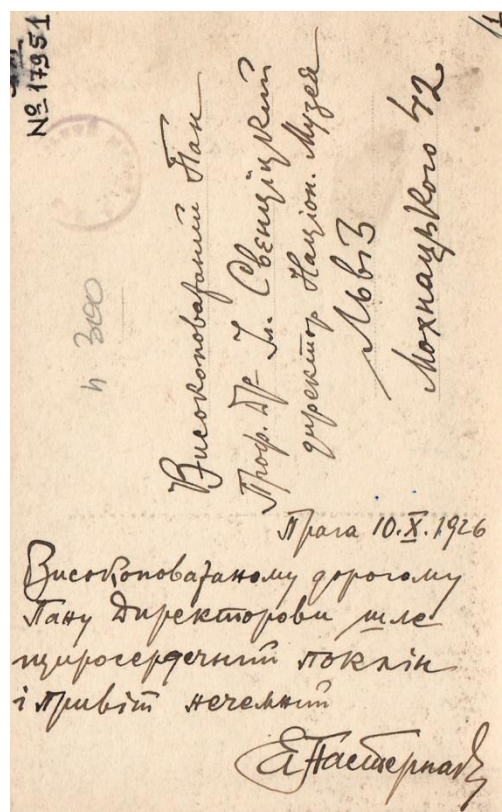 № 17951
Високоповажаний Пан
Проф. Др Іл. Свєнціцкий
директор Націон. Музея
Львів
Мохнацького 42
Прага 10.X.1926
Високоповажаному дорогому
Пану Директорови шле
щиросердечний поклін
і привіт нечемний
Я Пастернак